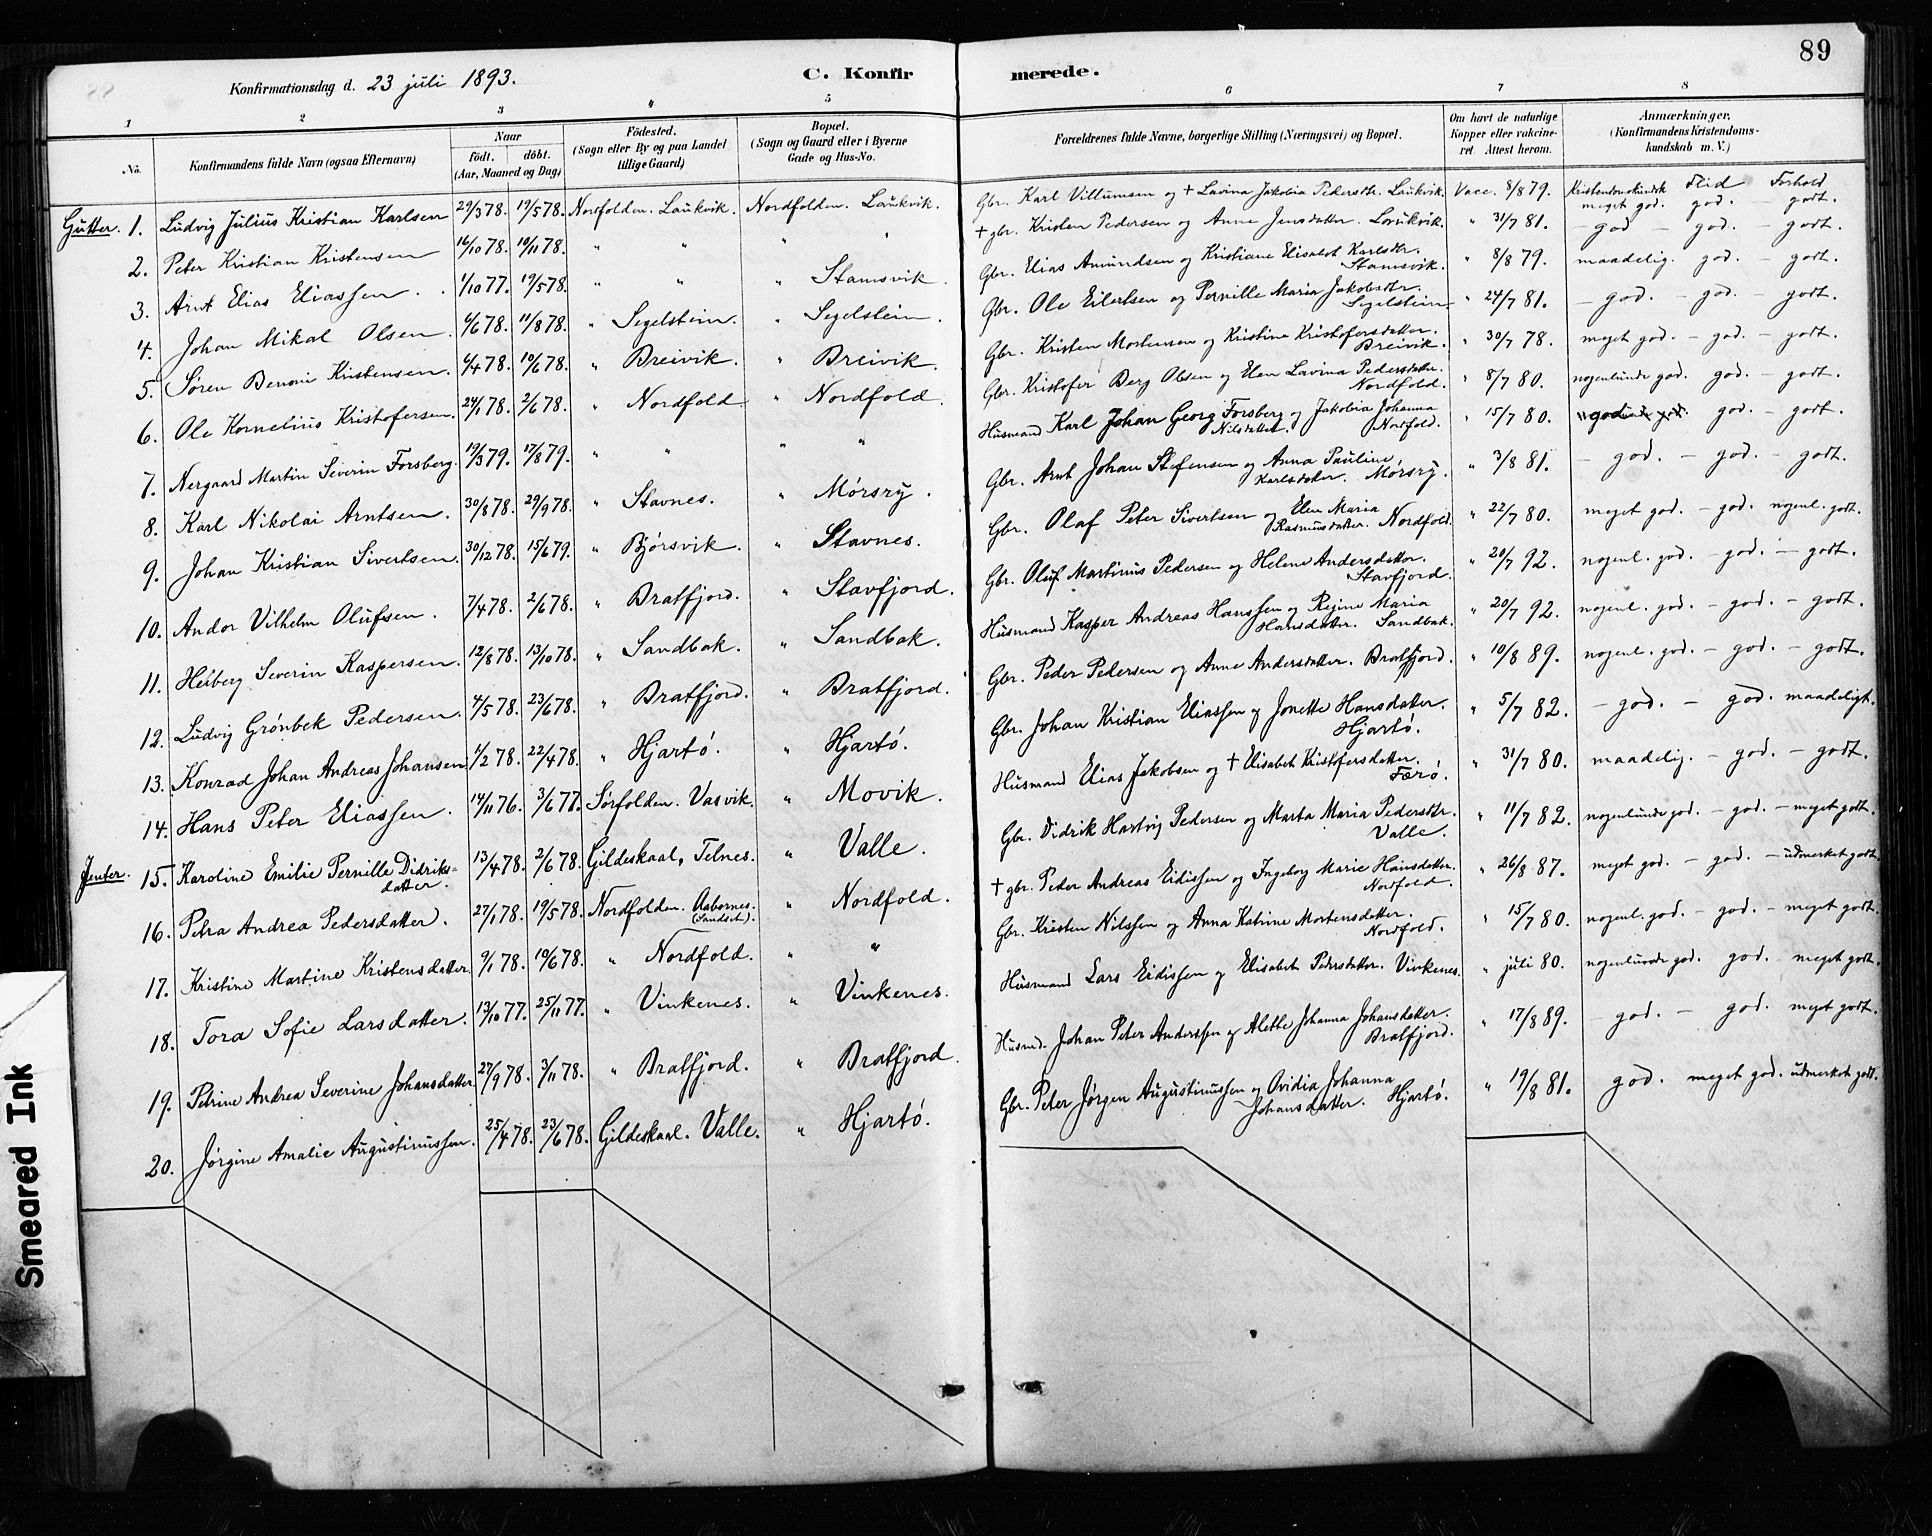 89
Konfirmationsdag d. 23 juli 1893.
C. Konfirmerede.
1 2 3 4 5 6 7 8
No.
Konfirmandens fulde Navn (ogsaa Efternavn)
Naar
födt. döbt.
(Aar, Maaned og Dag)
Födested.
(Sogn eller By og paa Landet
tillige Gaard)
Bopæl.
(Sogn og Gaard eller i Byerne
Gade og Hus-No.
Forældrenes fulde Navne, borgerlige Stilling (Næringsvei) og Bopæl.
Om havt de naturlige
Kopper eller vakcine-
ret. Attest herom.
Anmærkninger,
(Konfirmandens Kristendoms-
kundskab m. V.)
Kristendomskundsk. Flid Forhold
Gutter. 1. Ludvig Julius Kristian Karlsen 29/3 78. 19/5 78. Nordfolden. Laukvik. Nordfolden. Laukvik. Gbr. Karl Villumsen og † Lavina Jakobia Pedersdtr. Laukvik. Vacc. 8/8 79. meget god. god. – godt.
2. Peter Kristian Kristensen 16/10 78. 10/11 78. " " " " † gbr. Kristen Pedersen og Anne Jensdatter. Laukvik. " 31/7 81. – god – god. – godt.
3. Arnt Elias Eliassen. 1/10 77. 19/5 78. " " " Stamsvik. Gbr. Elias Amundsen og Kristiane Elisabet Karlsdtr. Stamsvik. " 8/8 79. maadelig. god. – godt.
4. Johan Mikal Olsen. 4/6 78. 11/8 78. " Segelstein. " Segelstein. Gbr. Ole Eilertsen og Pernille Maria Jakobsdtr. Segelstein " 24/7 81. – god. – god. godt.
5. Søren Benoni Kristensen. 4/4 78. 10/6 78. " Breivik. " Breivik. Gbr. Kristen Mortensen og Kristine Kristofersdatter. Breivik. " 30/7 78. meget god. – god. – godt.
6. Ole Kornelius Kristofersen. 24/1 78. 2/6 78. " Nordfold " Nordfold. Gbr. Kristofer Berg Olsen og Elen Lavina Pedersdatter. Nordfold. " 8/7 80. nogenlunde god. god. – godt.
7. Nergaard Martin Severin Forsberg. 19/3 79. 17/8 79. " " " " Husmand Karl Johan Georg Forsberg og Jakobia Johanna Nilsdatter. Nordfold. " 15/7 80. god. god. – godt.
8. Karl Nikolai Arntsen. 30/8 78. 29/9 78. " Stavnes. " Mørsry. Gbr. Arnt Johan Stefensen og Anna Pauline Karlsdatter. Mørsry. " 3/8 81. – god. – god. – godt.
9. Johan Kristian Sivertsen. 30/12 78. 15/6 79. " Bjørsvik. " Stavnes. Gbr. Olaf Peter Sivertsen og Elen Maria Rasmusdatter. Nordfold. " 22/7 80. meget god. – god. nogenl. godt.
10. Andor Vilhelm Olufsen. 7/4 78. 2/6 78. " Bratfjord. " Stavfjord. Gbr. Oluf Martinus Pedersen og Helene Andersdatter. Stavfjord. " 20/7 92. nogenl. god. – god. – godt.
11. Heiberg Severin Kaspersen. 12/8 78. 13/10 78. " Sandbak. " Sandbak. Husmand Kasper Andreas Hanssen og Regine Maria Hansdatter. Sandbak. " 20/7 92. nogenl. god. – god. – godt.
12. Ludvig Grönbek Pedersen. 4/5 78. 23/6 78. " Bratfjord. " Bratfjord. Gbr. Peder Pedersen og Anne Andersdatter. Bratfjord. " 10/8 89. nogenl. god. – god. – godt.
13. Konrad Johan Andreas Johansen 1/2 78. 22/4 78. " Hjartö. " Hjartö. Gbr. Johan Kristian Eliassen og Jonette Hansdatter. Hjartö. " 5/7 82. – god. – god. maadeligt.
14. Hans Peter Eliassen. 14/11 76. 3/6 77. Sørfolden. Vasvik. " Movik. Husmand Elias Jakobsen og † Elisabet Kristofersdatter. Færö. " 31/7 80. maadelig. – god. – godt.
Jenter. 15. Karoline Emilie Pernille Didriksdatter. 13/4 78. 2/6 78. Gildeskaal, Telnes. " Valle. Gbr. Didrik Hartvig Pedersen og Marta Maria Pedersdtr. Valle. " 11/7 82. nogenlunde god. – god. – meget godt.
16. Petra Andrea Pedersdatter. 27/1 78. 19/5 78. Nordfolden. Aabornes. (Sandset). " Nordfold. † gbr. Peder Andreas Eidissen og Ingeborg Marie Hansdatter. Nordfold. " 26/8 87. meget god. – god. – udmerket godt.
17. Kristine Martine Kristensdatter 9/1 78. 10/6 78. " Nordfold. " " Gbr. Kristen Nilssen og Anna Katrine Mortensdatter. Nordfold. " 15/7 80. nogenl. god. – god. – meget godt.
18. Tora Sofie Larsdatter. 13/10 77. 25/11 77. " Vinkenes. " Vinkenes. Husmand Lars Eidissen og Elisabet Pedersdatter. Vinkenes. " juli 80. nogenlunde god. god. – meget godt.
19. Petrine Andrea Severine Johansdatter 27/9 78. 3/11 78. " Bratfjord. " Bratfjord. Husmd. Johan Peter Anderssen og Alette Johanna Johansdatter. Bratfjord. " 17/8 89. – god. – god. meget godt.
20. Jørgine Amalie Augustinussen. 25/4 78. 23/6 78. Gildeskaal. Valle. " Hjartö. Gbr. Peter Jørgen Augustinussen og Ovidia Johanna Johansdatter. Hjartö. " 19/8 81. god. meget god. udmerket godt.
Smeared Ink